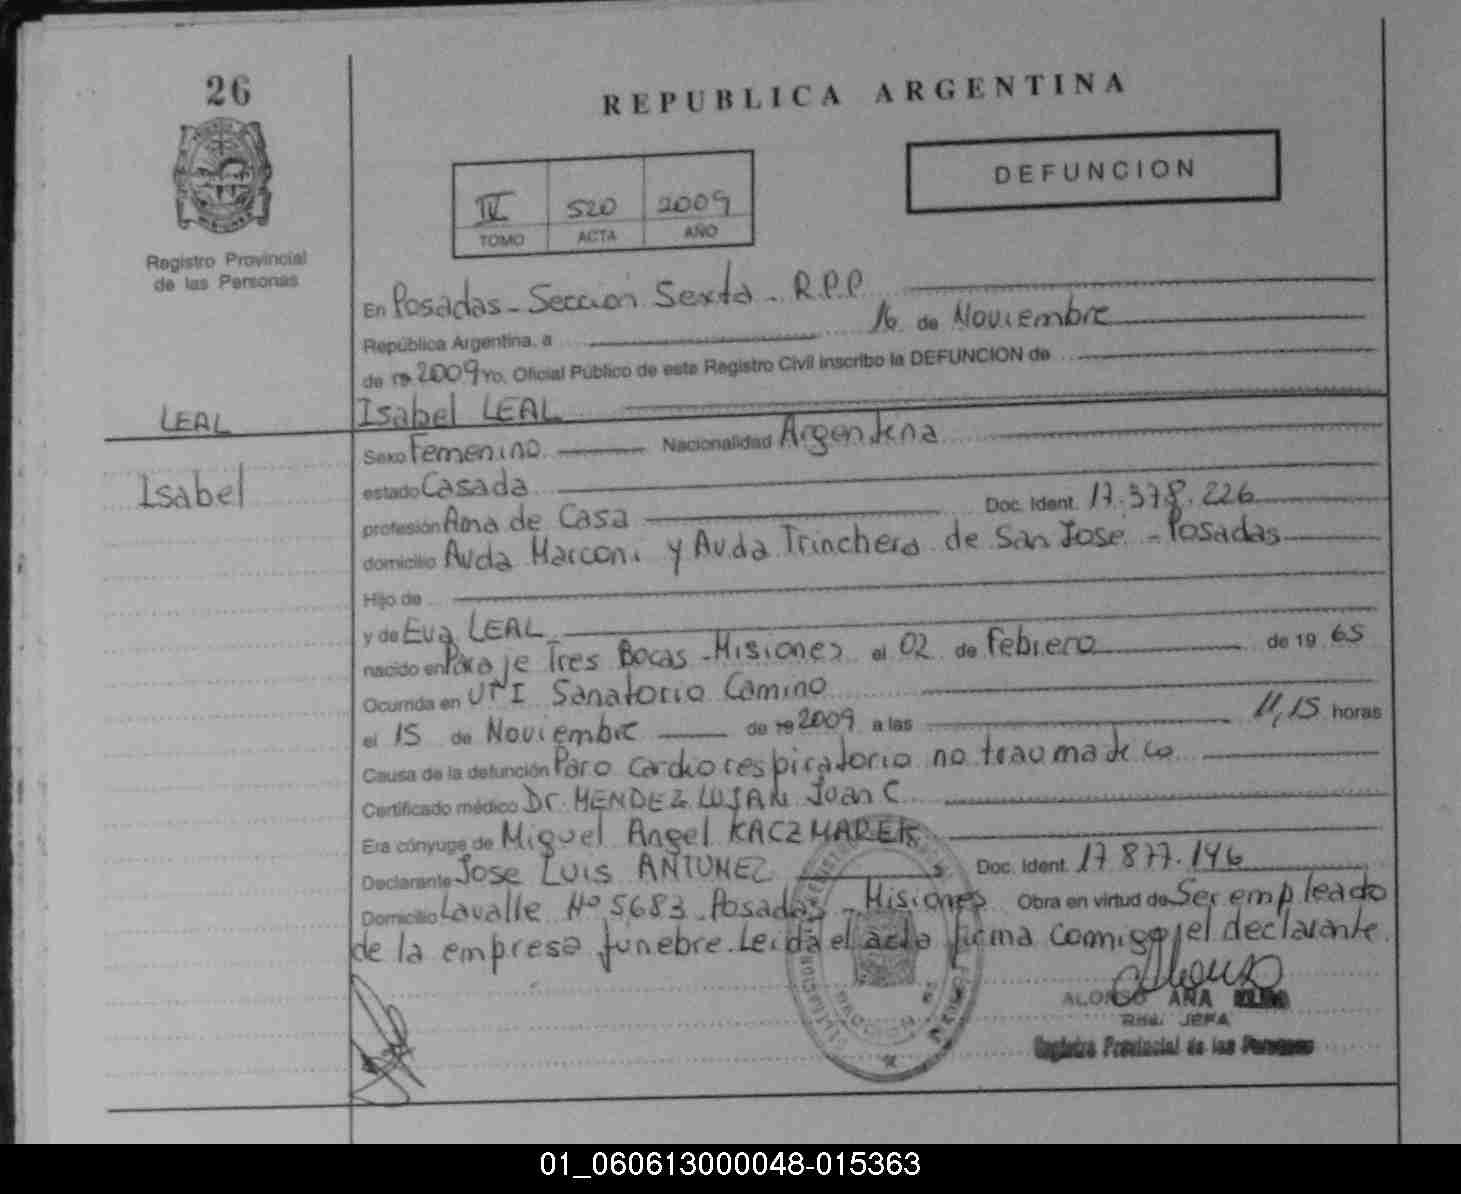 26
REPUBLICA ARGENTINA
DEFUNCION
IV 520 2009
TOMO ACTA AÑO
Registro Provincial
de las Personas
En Posadas - Seccion Sexta - R.P.P.
República Argentina, a 16 de Noviembre
de 19 2009 Yo, Oficial Público de este Registro Civil inscribo la DEFUNCION de
LEAL Isabel LEAL
Sexo Femenino Nacionalidad Argentina
Isabel
estado Casada
profesión Ama de Casa Doc. Ident. 17.378.226
domicilio Avda Marconi y Avda Trinchera de San Jose - Posadas
Hijo de
y de Eva LEAL
nacido en Paraje Tres Bocas - Misiones el 02 de Febrero de 19 65
Ocurrida en UTI Sanatorio Camino
el 15 de Noviembre de 19 2009 a las 11,15 horas
Causa de la defunción Paro cardiorespiratorio no traumatico
Certificado médico Dr. MENDEZ LUJAN Juan C
Era cónyuge de Miguel Angel KACZMAREK
Declarante Jose Luis ANTUNEZ Doc. Ident. 17 877.146
Domicilio Lavalle Nº 5683 Posadas - Misiones Obra en virtud de Ser empleado
de la empresa funebre. Leida el acta firma conmigo el declarante.
ALONSO ANA
JEFA
Registro Provincial de las Personas
01_060613000048-015363